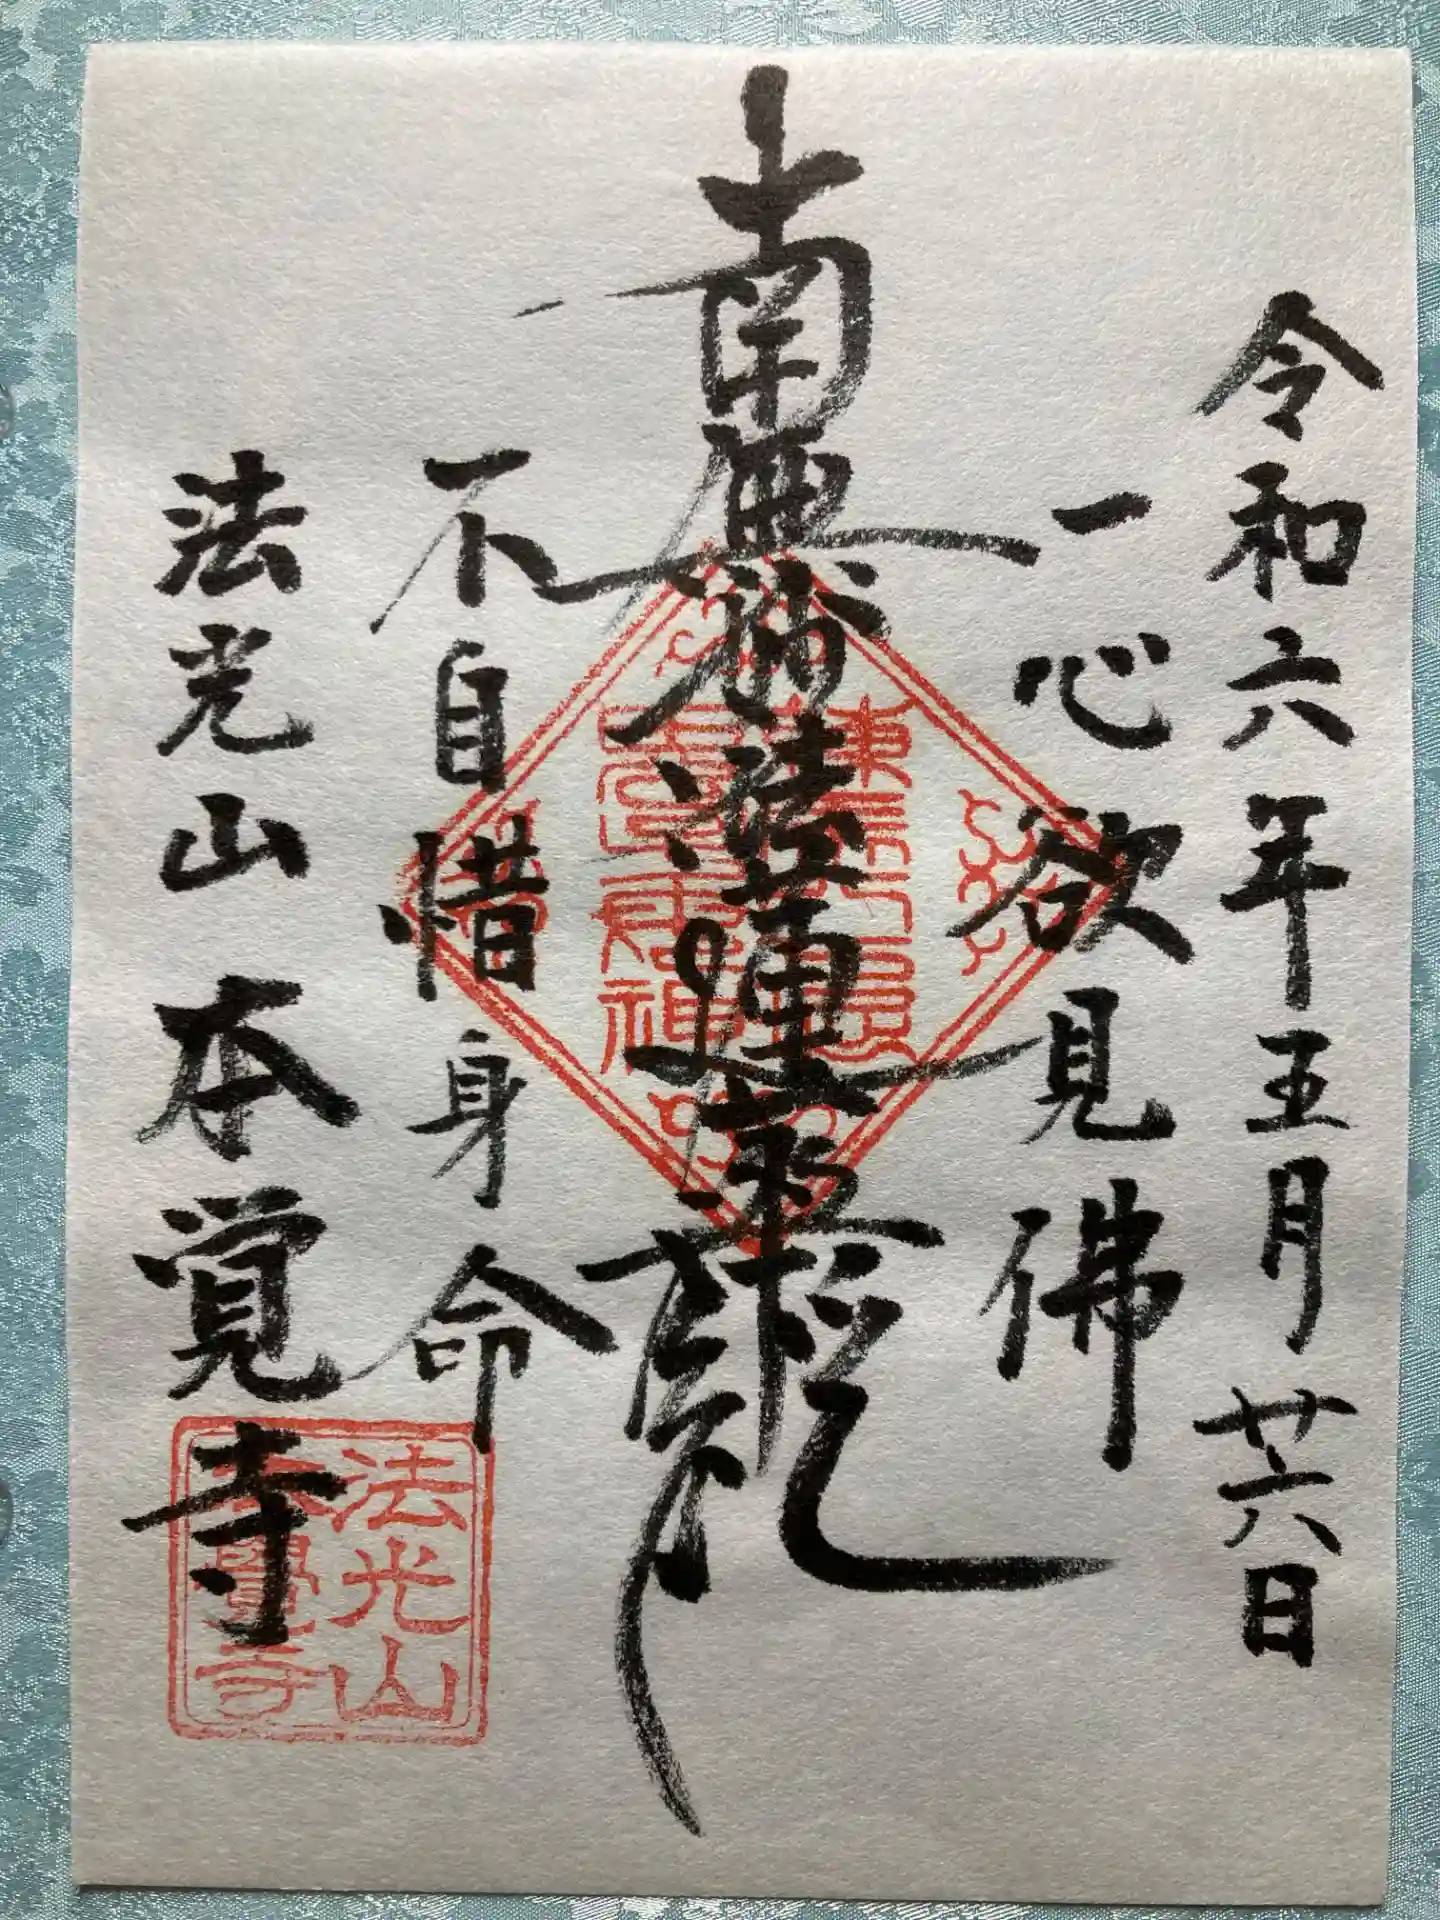 令和六年五月廿六日
一心欲見佛
南無妙法蓮華経
不自惜身命
法光山本覚寺
法光山
本覺寺